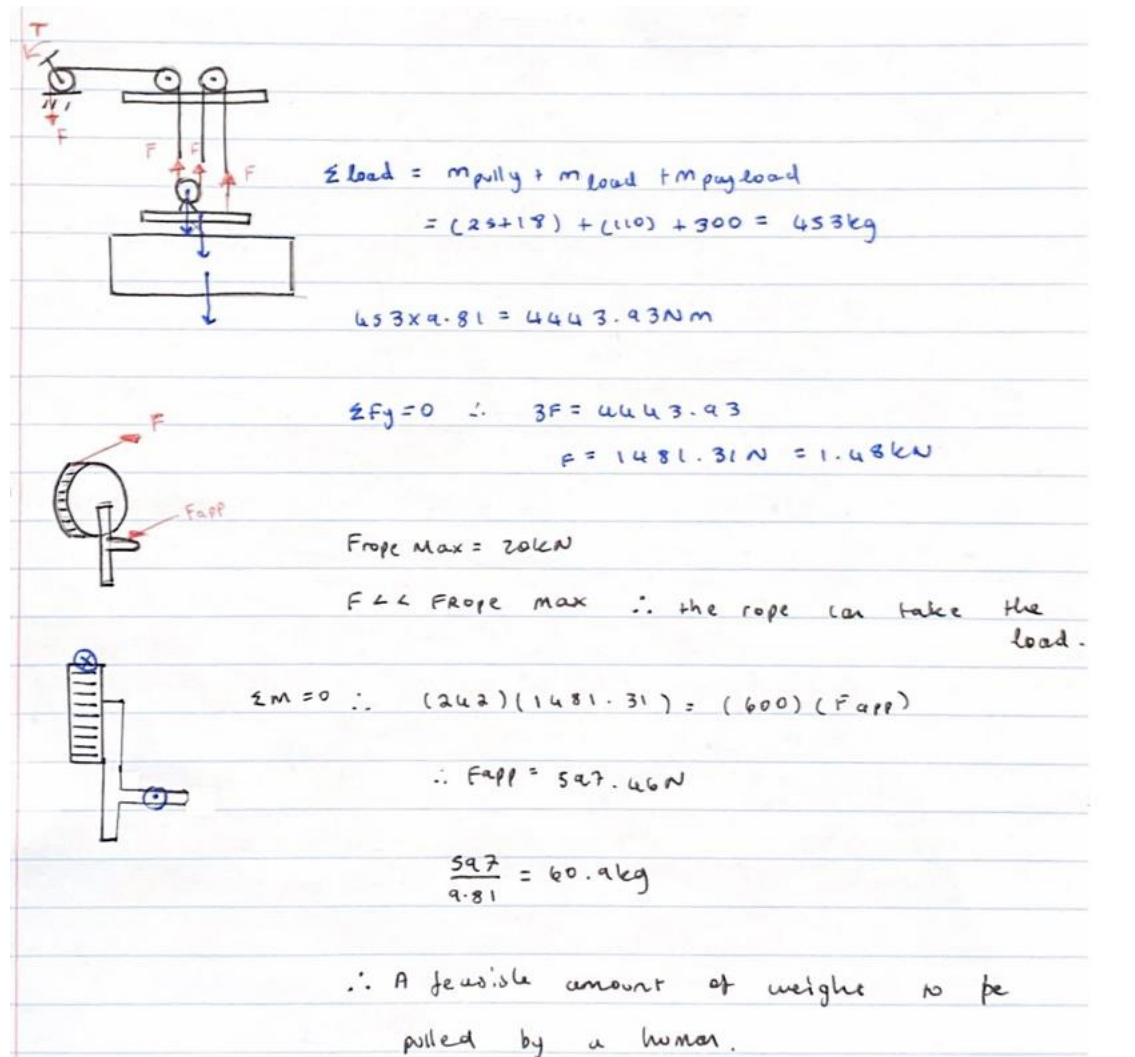 T
F
F F F
Σ load = m pully + m load + m payload
= (25+18) + (110) + 300 = 453kg
453x9.81 = 4443.93Nm
ΣFy=0 ∴ 3F = 4443.93
F = 1481.31N = 1.48kN
F
Fapp
Frope Max = 20kN
F << FRope max ∴ the rope can take the
load.
ΣM=0 ∴ (242)(1481.31) = (600)(Fapp)
∴ Fapp = 597.46N
597/9.81 = 60.9kg
∴ A feasible amount of weight to be
pulled by a human.